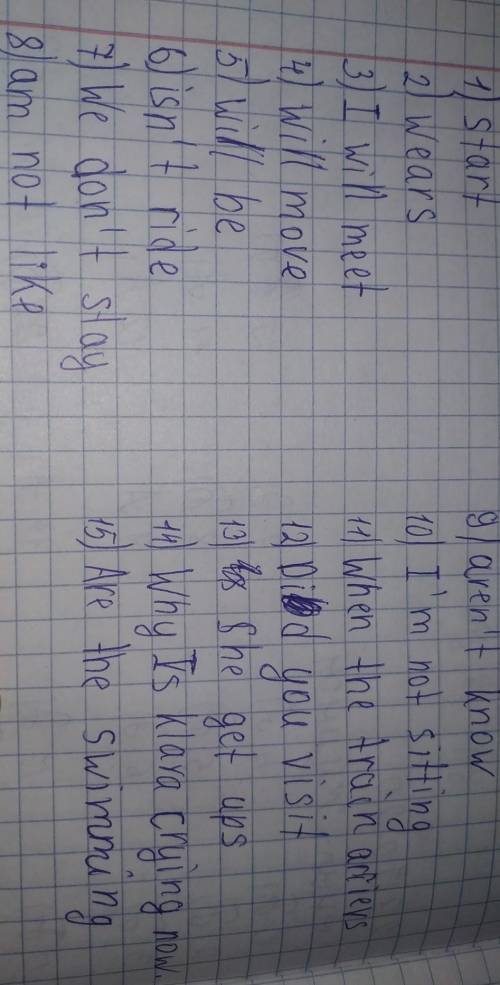 1) start
2) wears
3) I will meet
4) will move
5) will be
6) isn't ride
7) We don't stay
8) am not like
9) aren't know
10) I'm not sitting
11) When the train arrievs
12) Did you visit
13) She get ups
14) Why Is klara crying now.
15) Are the swimming